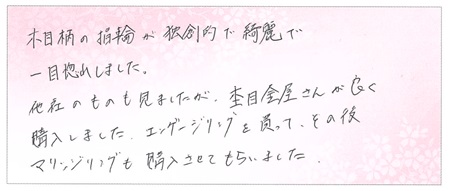 木目柄の指輪が独創的で綺麗で
一目惚れしました。
他社のものも見ましたが、杢目金屋さんが良く
購入しました。エンゲージリングを買って、その後
マリッジリングも購入させてもらいました。